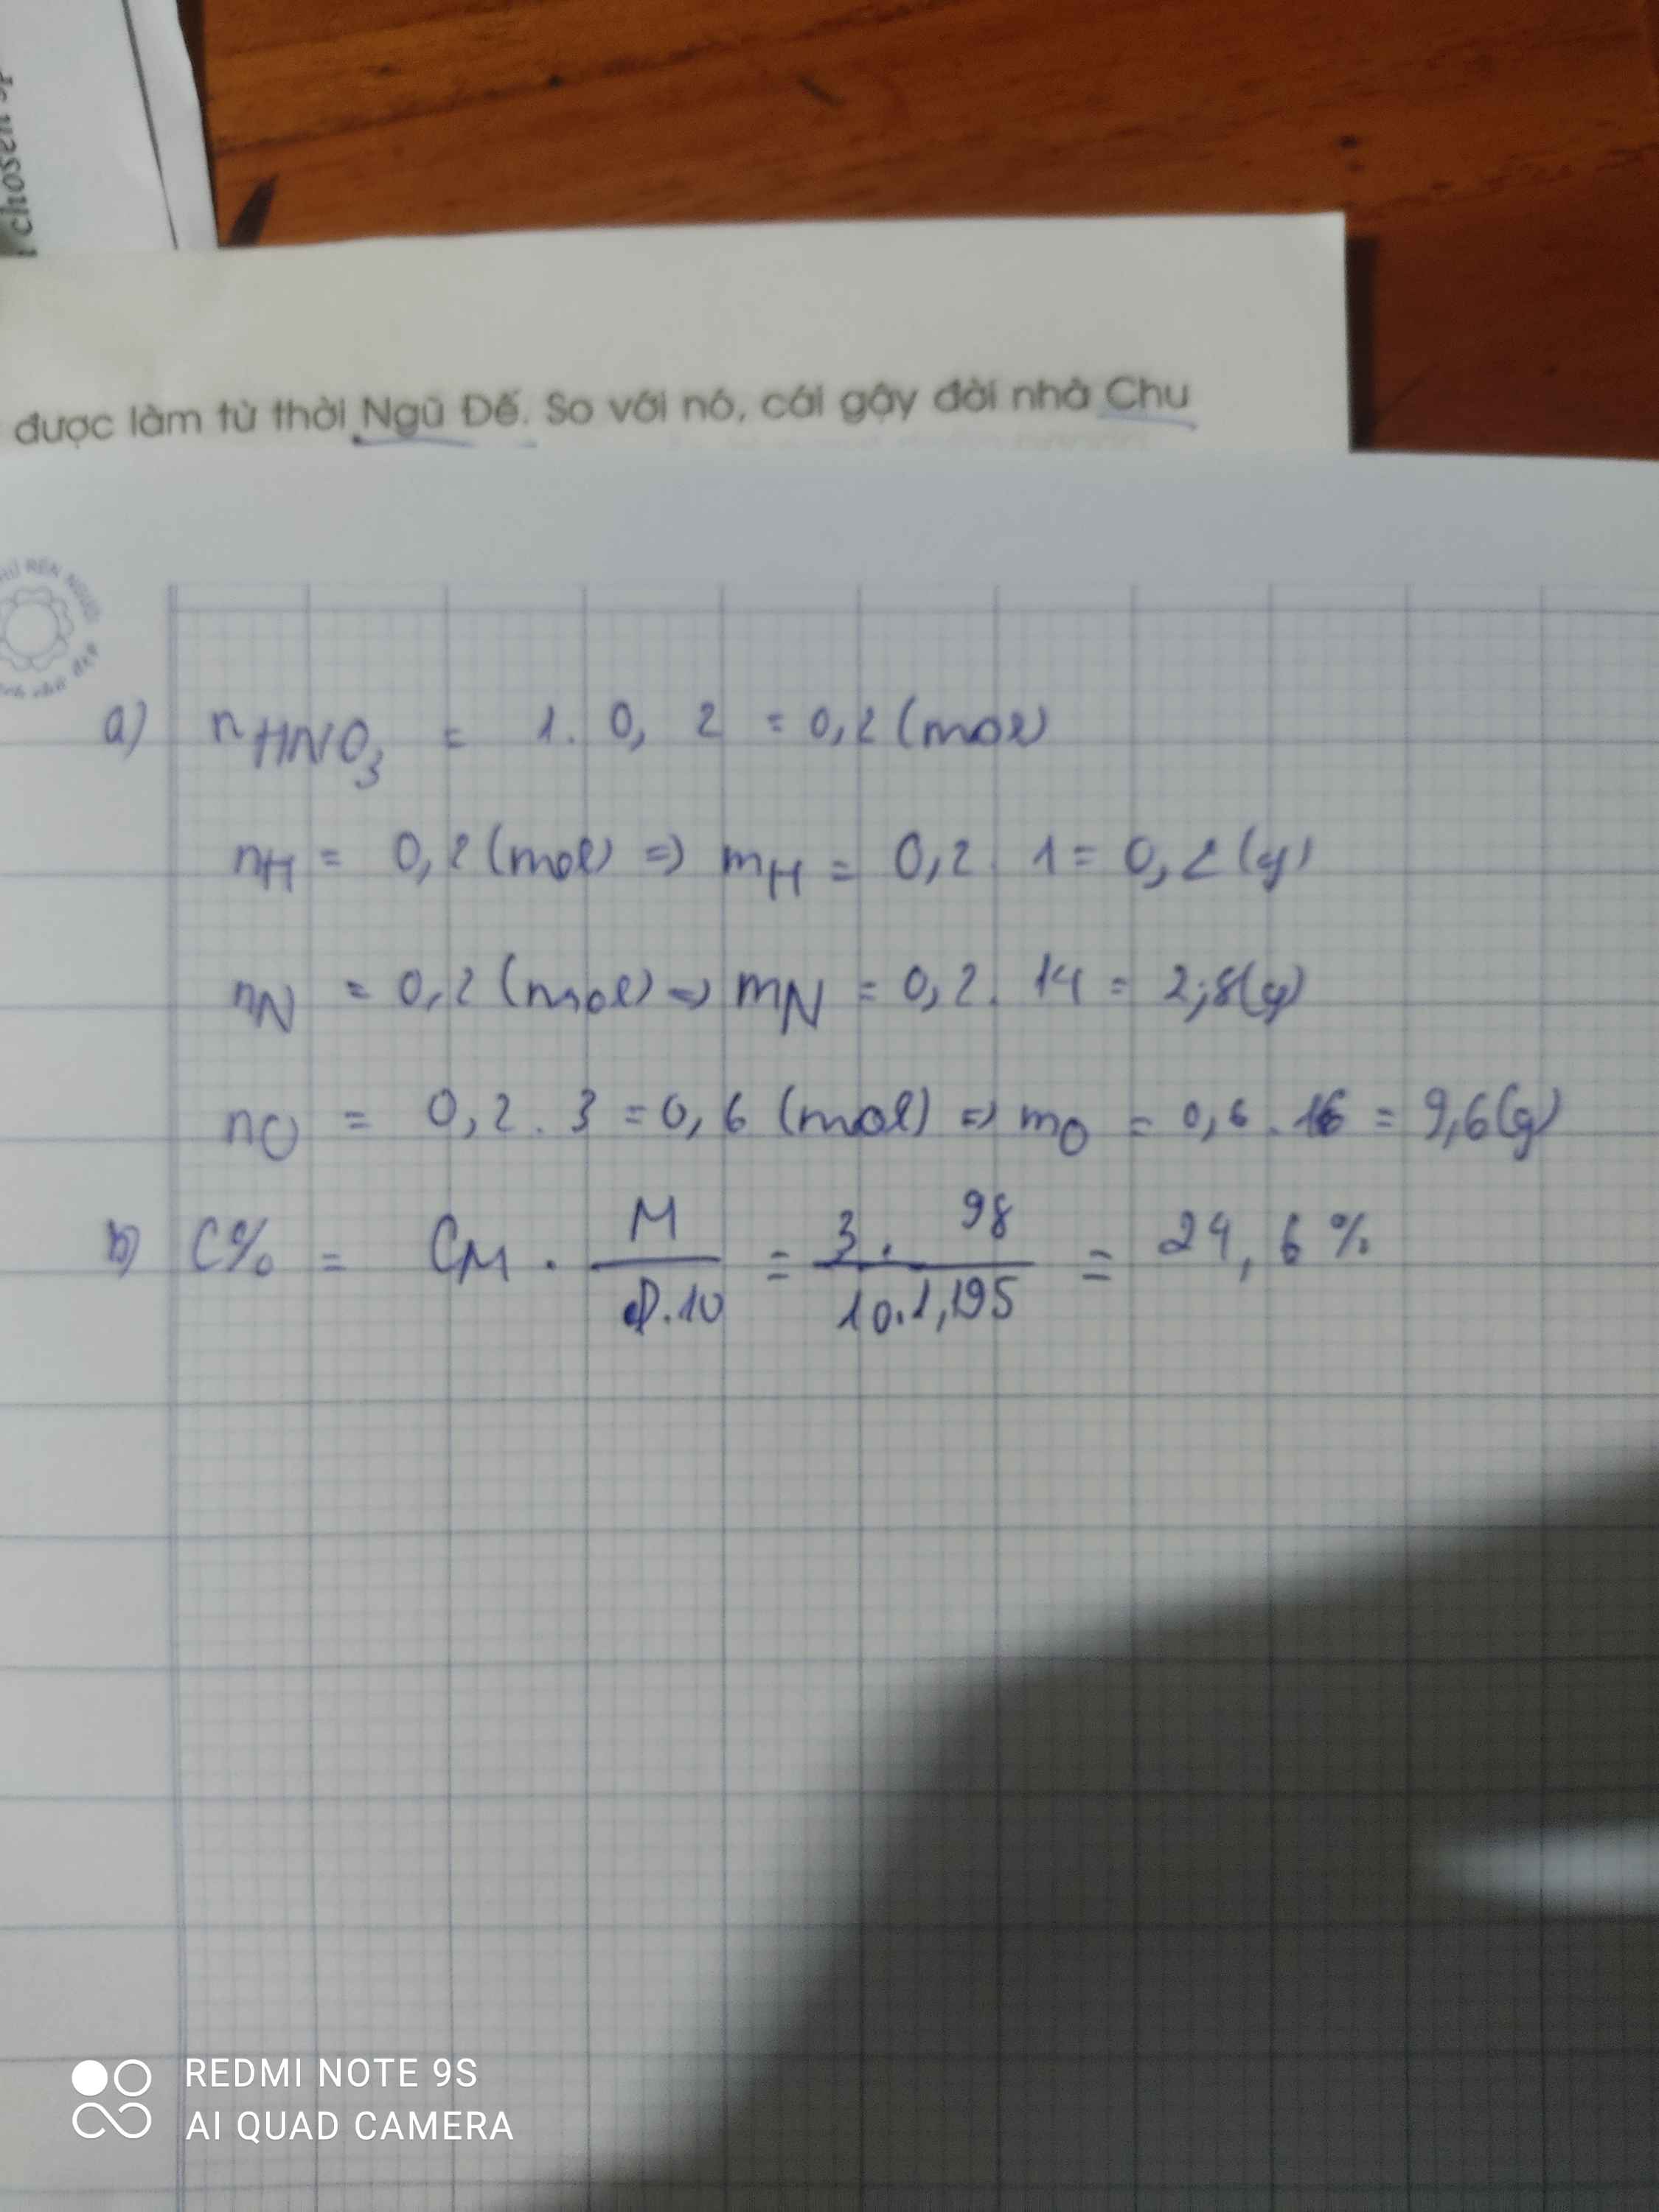 chosen
được làm từ thời Ngũ Đế. So với nó, cái gậy đời nhà Chu
RÈN NGƯỜI
a) nHNO3 = 1. 0, 2 = 0,2 (mol)
nH = 0,2 (mol) => mH = 0,2. 1 = 0,2 (g)
nN = 0,2 (mol) => mN = 0,2. 14 = 2,8(g)
nO = 0,2. 3 = 0,6 (mol) => mO = 0,6. 16 = 9,6(g)
b) C% = CM . M / D.10 = 3. 98 / 10.1,195 = 24, 6 %
REDMI NOTE 9S
AI QUAD CAMERA